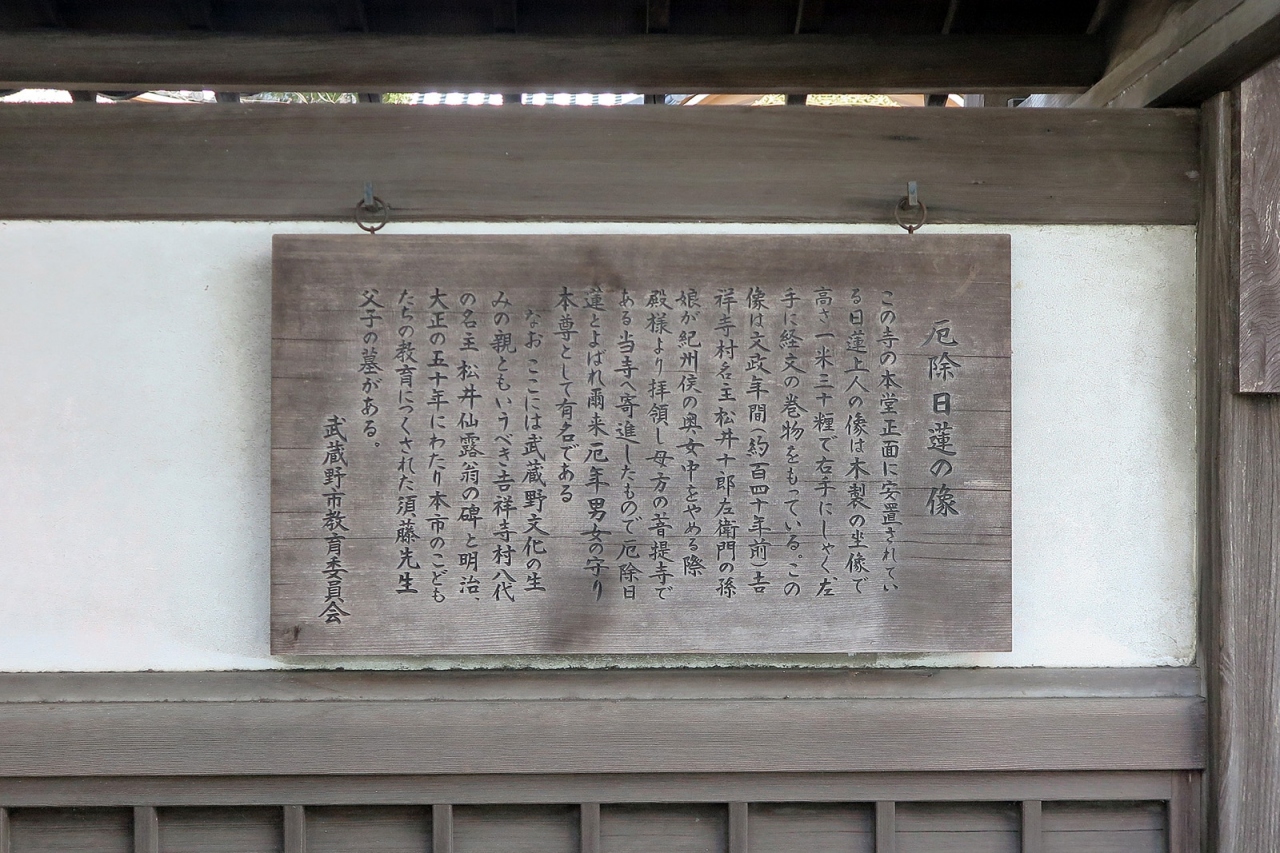 厄除日蓮の像
この寺の本堂正面に安置されてい
る日蓮上人の像は木製の坐像で
高さ一米三十糎で右手にしゃく、左
手に経文の巻物をもっている。この
像は文政年間(約百四十年前)吉
祥寺村名主松井十郎左衛門の孫
娘が紀州侯の奥女中をやめる際
殿様より拝領し母方の菩提寺で
ある当寺へ寄進したもので厄除日
蓮とよばれ爾来厄年男女の守り
本尊として有名である
なおここには武蔵野文化の生
みの親ともいうべき吉祥寺村八代
の名主松井仙露翁の碑と明治、
大正の五十年にわたり本市のこども
たちの教育につくされた須藤先生
父子の墓がある。
武蔵野市教育委員会